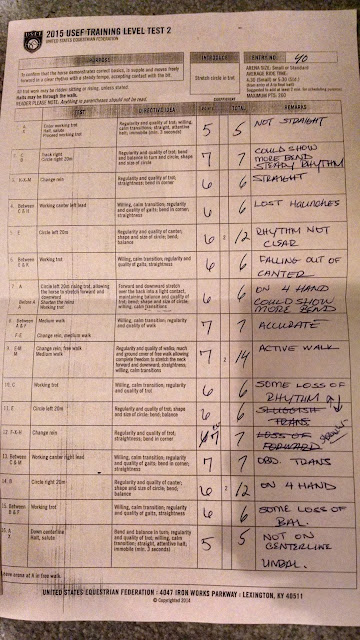 2015 USEF TRAINING LEVEL TEST 2
UNITED STATES EQUESTRIAN FEDERATION
PURPOSE
INTRODUCE
ENTRY NO 40
To confirm that the horse demonstrates correct basics, is supple and moves freely
forward in a clear rhythm with a steady tempo, accepting contact with the bit.
All trot work may be ridden sitting or rising, unless stated.
Halts may be through the walk.
READER PLEASE NOTE: Anything in parentheses should not be read.
Stretch circle in trot
ARENA SIZE: Small or Standard
AVERAGE RIDE TIME:
MAXIMUM PTS: 260
COEFFICIENT
TEST
DIRECTIVE IDEA
POINTS
TOTAL
REMARKS
Enter working trot
Halt, salute
Proceed working trot
Regularity and quality of trot; willing,
calm transitions; straight, attentive
halt; immobility (min. 3 seconds)
5
5
NOT STRAIGHT
Track right
Circle right 20m
Regularity and quality of trot; bend and
balance in turn and circle; shape
and size of circle
7
7
COULD SHOW
MORE BEND
STEADY RHYTHM
K-X-M
Change rein
Regularity and quality of trot;
straightness; bend in corner
6
6
STRAIGHT
4. Between
C & H
Working canter left lead
Willing, calm transition; regularity
and quality of gaits; bend in corner;
straightness
6
6
LOST HAUNCHES
5. E
Circle left 20m
Regularity and quality of canter;
shape and size of circle; bend;
balance
6
2
12
RHYTHM NOT
CLEAR
6. Between
E & K
Working trot
Willing, calm transition; regularity
and quality of gaits; straightness
6
6
FALLING OUT OF
CANTER
7. A
Before A
A
Circle left 20m rising trot, allowing
the horse to stretch forward and
downward
Shorten the reins
Working trot
Forward and downward stretch
over the back into a light contact,
maintaining balance and quality of
trot; bend; shape and size of circle;
willing, calm transitions
6
6
ON 4 HAND
COULD SHOW
MORE BEND
8. Between
A & F
F-E
Medium walk
Change rein, medium walk
Willing, calm transition; regularity
and quality of walk
7
7
ACCURATE
9. E-M
M
Change rein, free walk
Medium walk
Regularity and quality of walks; reach
and ground cover of free walk allowing
complete freedom to stretch the neck
forward and downward; straightness;
willing, calm transitions
7
2
14
ACTIVE WALK
10. C
Working trot
Willing, calm transition; regularity
and quality of trot
6
6
SOME LOSS OF
RHYTHM
11. E
Circle left 20m
Regularity and quality of trot; shape
and size of circle; bend; balance
6
6
SLUGGISH
TRANS
12. F-X-H
Change rein
Regularity and quality of trot;
straightness; bend in corner
7
7
LOSS OF
FORWARD
13. Between
C & M
Working canter right lead
Willing, calm transition; regularity and
quality of gaits; bend in corner;
straightness
7
7
OBD. TRANS
14. B
Circle right 20m
Regularity and quality of canter;
shape and size of circle; bend;
balance
6
2
12
ON 4 HAND
15. Between
B & F
Working trot
Willing, calm transition; regularity
and quality of gaits; straightness
6
6
SOME LOSS OF
BAL.
16. A
X
Down centerline
Halt, salute
Bend and balance in turn; regularity
and quality of trot; willing, calm
transition; straight, attentive halt;
immobility (min. 3 seconds)
5
5
NOT ON
CENTERLINE
UNBAL.
Leave arena at A in free walk.
UNITED STATES EQUESTRIAN FEDERATION : 4047 IRON WORKS PARKWAY : LEXINGTON, KY 40511
© Copyright 2014